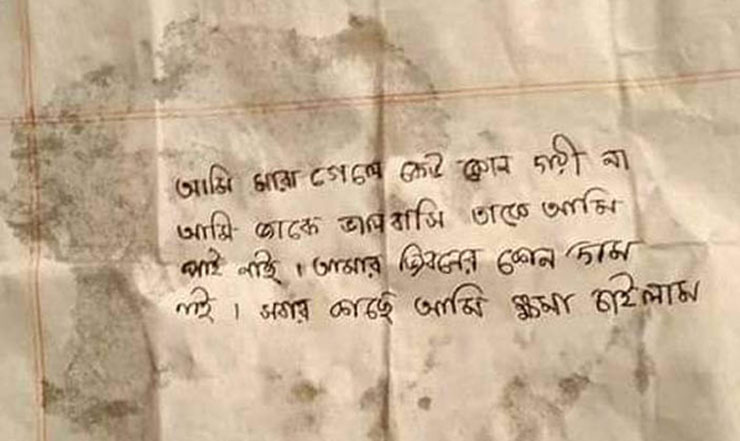 আমি মারা গেলে কেউ কোন দায়ী না
আমি জাকে ভালবাসি তাকে আমি
পাই নাই । আমার জিবনের কোন দাম
নাই । সবার কাছে আমি ক্ষমা চাইলাম